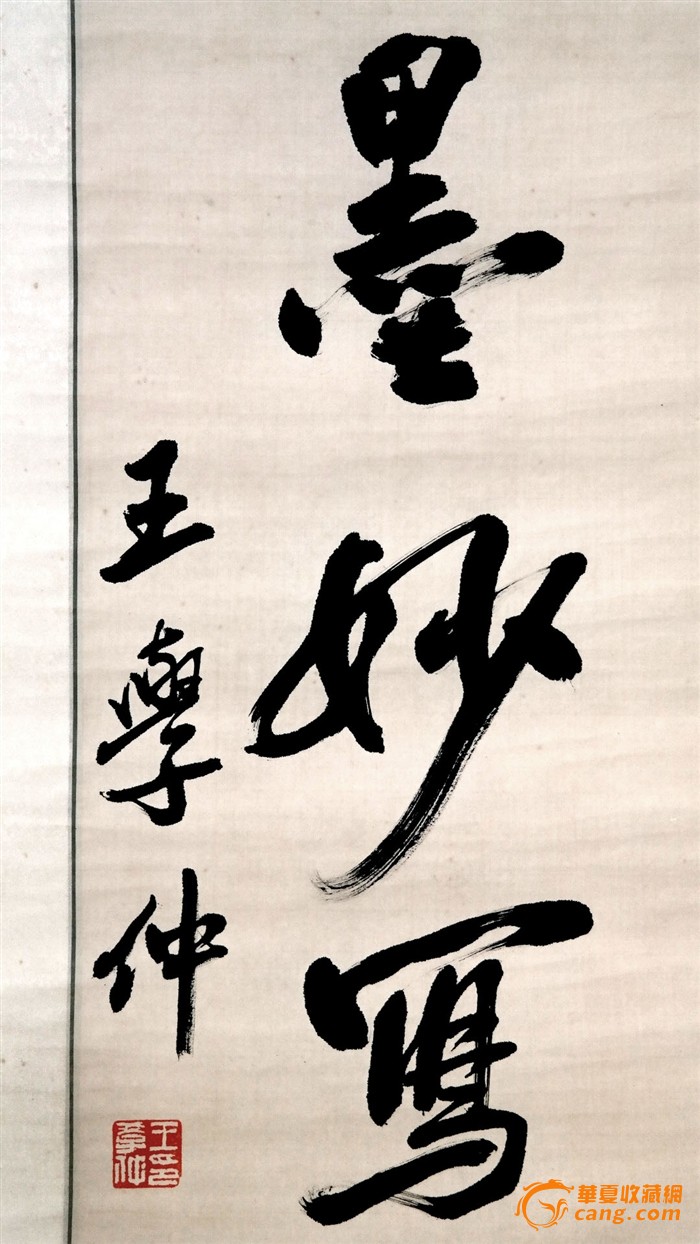 墨妙寫
王學仲
王學仲印
華夏收藏網
cang.com